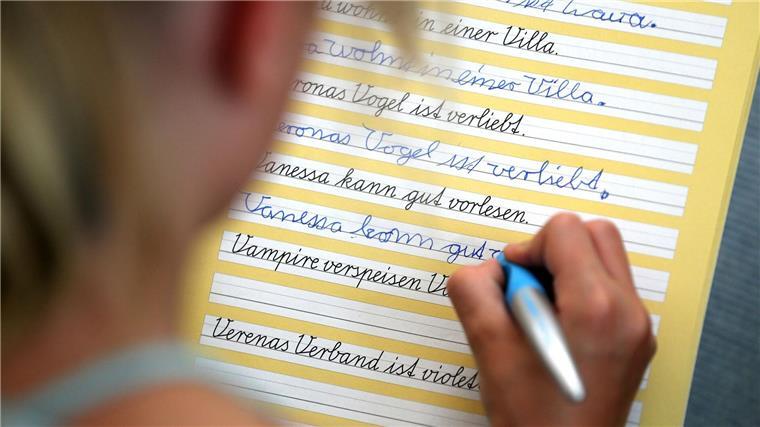 wohnt in einer Villa.
wohnt in einer Villa.
ronas Vogel ist verliebt.
eronas Vogel ist verliebt.
Vanessa kann gut vorlesen.
Vanessa kann gut
Vampire verspeisen
Verenas Verband ist violet